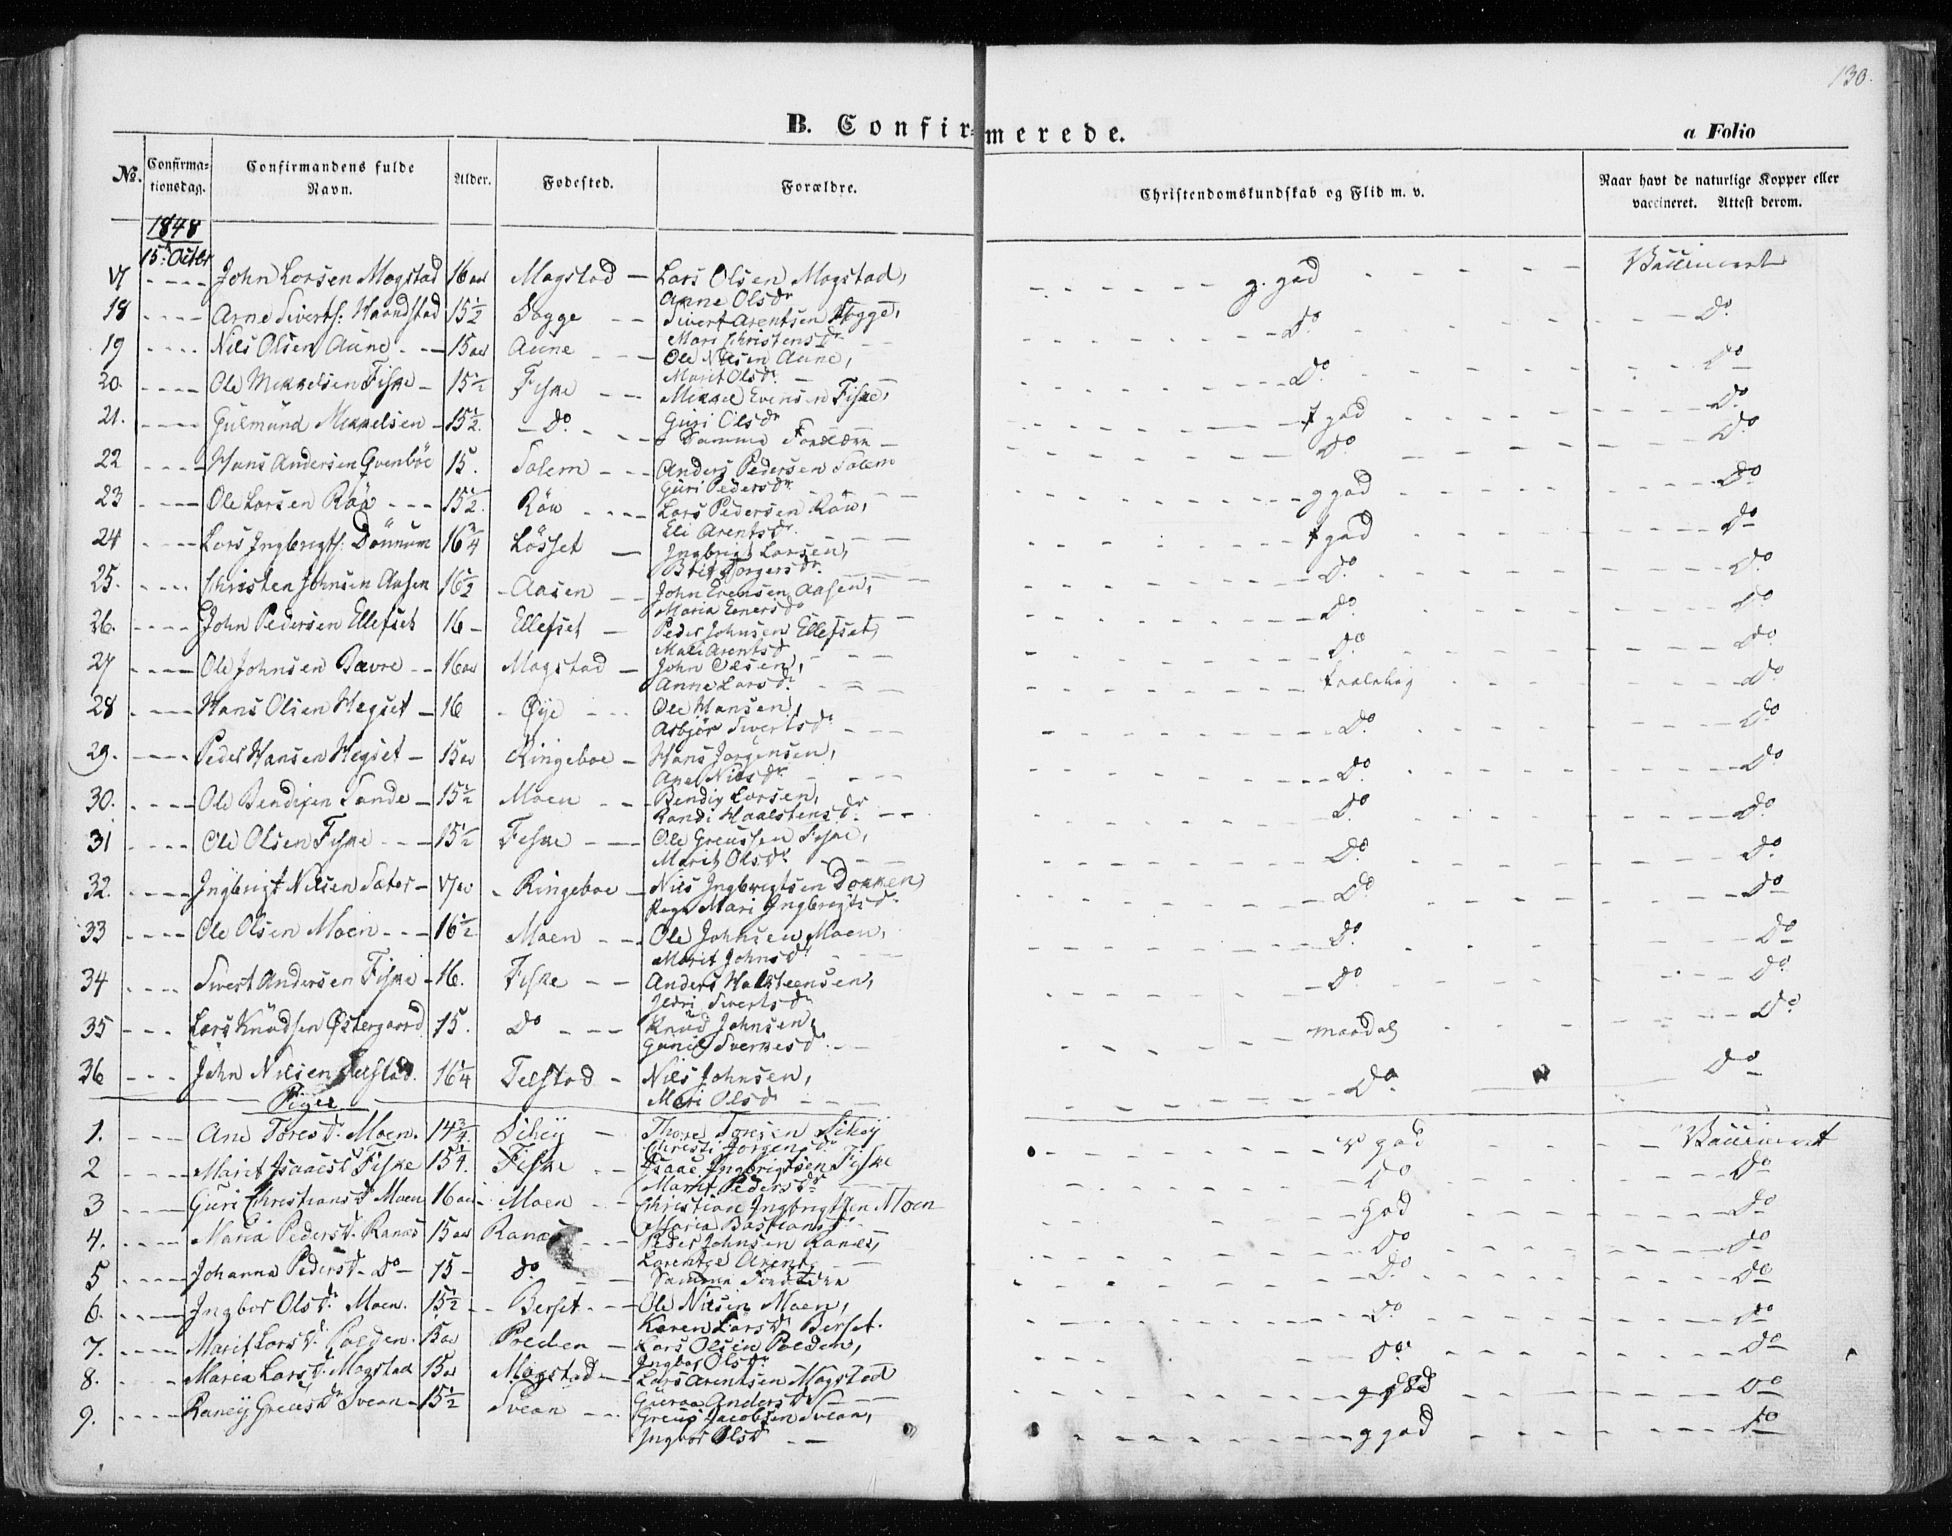 130.
B. Confirmerede.
a Folio
No. Confirmationsdag. Confirmandens fulde Navn. Alder. Fødested. Forældre. Christendomskundskab og Flid m. v. Naar havt de naturlige Kopper eller vaccineret. Attest derom.
1848
15. Octbr
17 John Larsen Magstad 16 aar Magstad Lars Olsen Magstad, g. god Vaccineret
Anne Olsdr
18 Arne Siverts: Haandstad 15½ Bøgge Sivert Arentsen Bøgge, Do Do
Mari Christensdr
19 Nils Olsen Aune 15 aar Aune Ole Nilsen Aune, Do Do
Marit Olsdr
20. Ole Mikkelsen Fiske 15½ Fiske Mikkel Evensen Fiske, Do
Guri Olsdr
21. Gulmund Mikkelsen 15½ Do Samme Forældre Do Do
22 Hans Andersen Qvenbøe 15. Solem Anders Pedersen Solem g god Do
Guri Pedersdr
23 Ole Larsen Røv 15½ Lars Pedersen Do
Eli Arentsdr
24 Lars Ingbrigts: Dønnum 16¾ Løsset Ingbrigt Larsen, Do Do
Brit Torgersdr
25. Christen Johnsen Aasen 16½ Aasen John Evensen Aasen, Do Do
Maria Einersdr
26. John Pedersen Ellefset 16 Ellefset Peder Johnsen Ellefset, Do Do
Mali Arentsd
27 Ole Johnsen Bævre 16 aar Magstad John Olsen, taalelig Do
Anne Larsdr
28 Hans Olsen Hegset 16 Øye Ole Hansen, Do Do
Asbjør Sivertsdr
29. Peder Hansen Hegset 15 aar Ringeboe Hans Jørgensen, Do Do
Ane Nilsdr
30. Ole Bendixen Sande 15½ Moen Bendix Larsen, Do Do
Randi Haalstensdr
31 Ole Olsen Fiske 15½ Fiske Ole Greussen Fiske, Do Do
Marit Olsdr
32. Ingbrigt Nilsen Sæter 17 aar Ringeboe Nils Ingbrigtsen Dokken, Do Do
Mari Ingbrigtsdr
33 Ole Olsen Moen 16½ Moen Ole Johnsen Moen, Do Do
Marit Johnsdr
34 Sivert Andersen Fiske 16. Fiske Anders Halsteensen, Do Do
Sivertsdr
35 Lars Knudsen Østergaard 15. Do Knud Johnsen, maadel. Do
Gunil Sverkesdr
36 John Nilsen Telstad 16¼ Telstad Nils Johnsen, Do Do
Mari Olsdr
Piger
1. Ane Toresdr Moen. 14¾ Thore Toresen god Vaccineret
Christi Jørgensdr
2 Marit Isaacsdr Fiske 15¼ Fiske Isaac Ingbrigtsen Fiske Do Do
Marit Pedersdr
3 Guri Christiansdr Moen 16 aar Moen Christian Ingbrigtsen Moen God Do
Maria Bastiansdr
4. Maria Pedersdr Ranæs 15 aar Ranæs Peder Johnsen Ranæs, Do Do
Lorentze Arent.
5 Johanna Pedersdr Do 15 do Samme Forældre Do Do
6. Ingbor Olsdr Moen. 15½ Berset Ole Nilsen Moen, Do Do
Karen Larsdr Berset.
7. Marit Larsdr Polden. 15 aar Polden Lars Olsen Polden, Do Do
Ingbor Olsdr
8. Maria Larsdr Magstad 15 aar Magstad Lars Arentsen Magstad g god Do
Andersdr
9. Greusdr Svean 15½ Svean Greus Jacobsen Svean, g god Do
Ingbor Olsdr